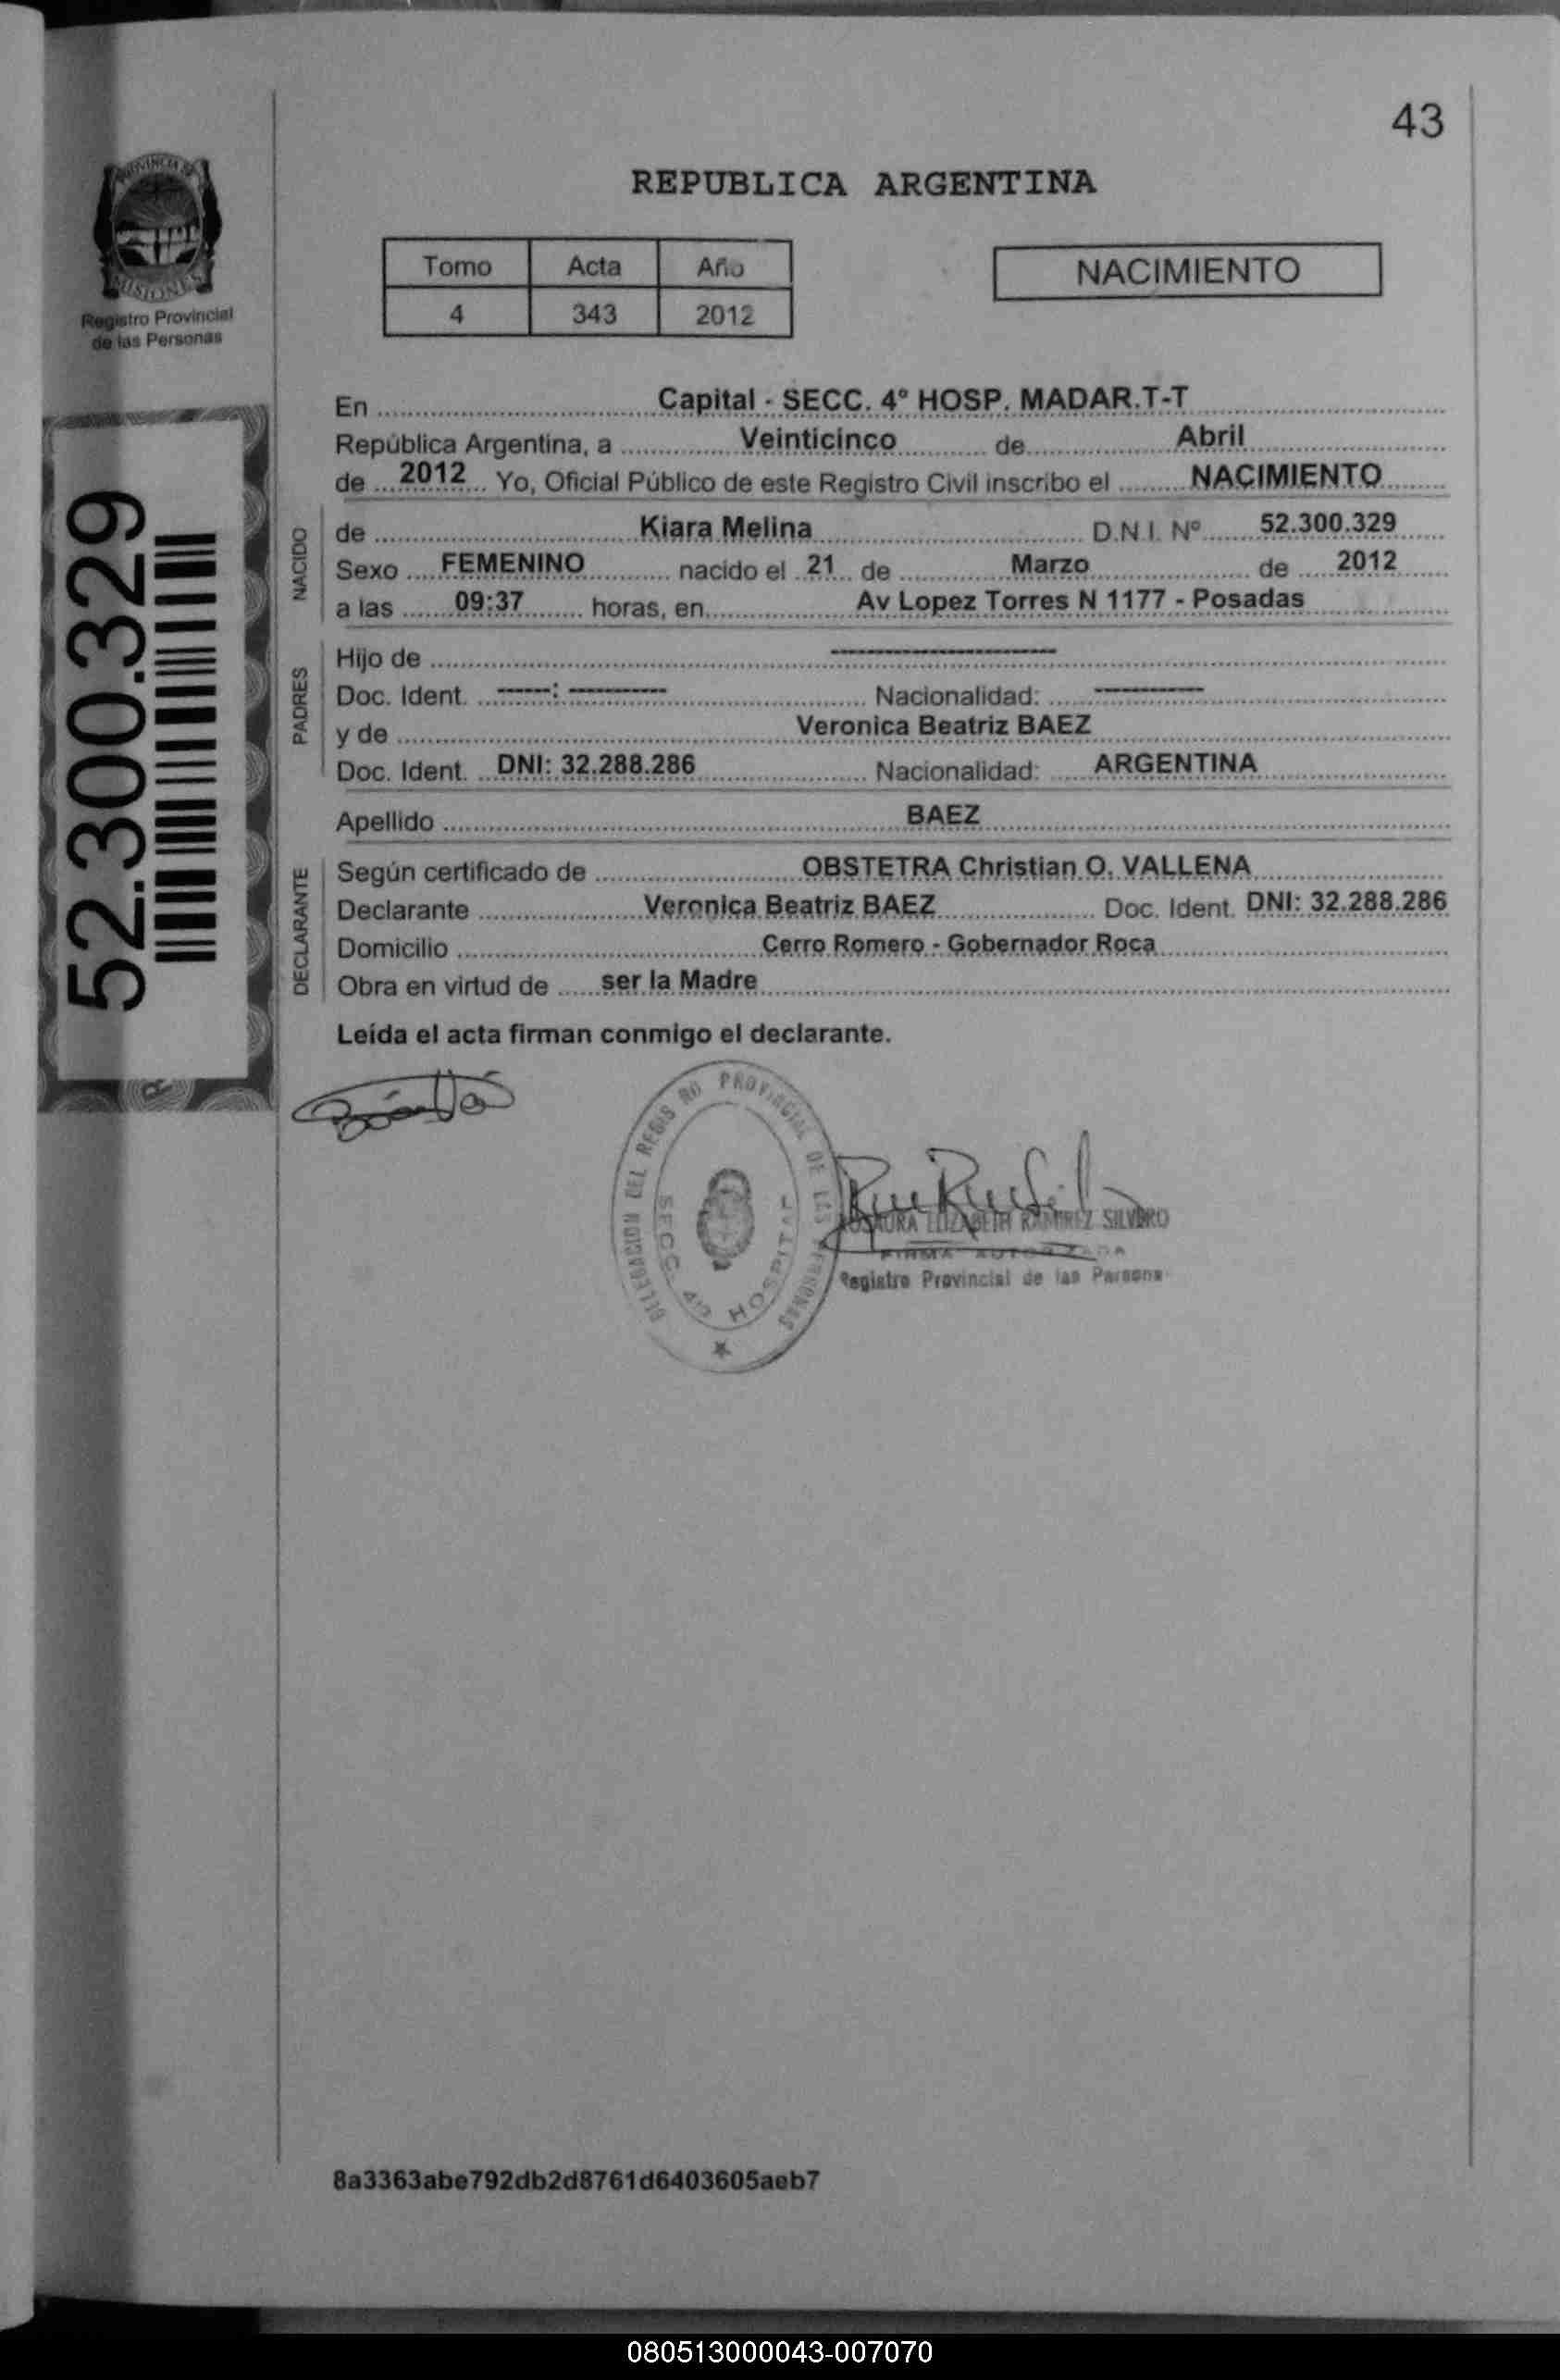 43
PROVINCIA DE
MISIONES
Registro Provincial
de las Personas
REPUBLICA ARGENTINA
Tomo Acta Año
4 343 2012
NACIMIENTO
52.300.329
En Capital - SECC. 4º HOSP. MADAR.T-T
República Argentina, a Veinticinco de Abril
de 2012 Yo, Oficial Público de este Registro Civil inscribo el NACIMIENTO
NACIDO
de Kiara Melina D.N.I. Nº 52.300.329
Sexo FEMENINO nacido el 21 de Marzo de 2012
a las 09:37 horas, en Av Lopez Torres N 1177 - Posadas
PADRES
Hijo de ----------
Doc. Ident. -----: --------- Nacionalidad: ----------
y de Veronica Beatriz BAEZ
Doc. Ident. DNI: 32.288.286 Nacionalidad: ARGENTINA
Apellido BAEZ
DECLARANTE
Según certificado de OBSTETRA Christian O. VALLENA
Declarante Veronica Beatriz BAEZ Doc. Ident. DNI: 32.288.286
Domicilio Cerro Romero - Gobernador Roca
Obra en virtud de ser la Madre
Leída el acta firman conmigo el declarante.
DELEGACION DEL REGIS RO PROVINCIAL DE LAS PERSONAS
SECC. 4º HOSPITAL
ELIZABETH RAMIREZ SILVERO
FIRMA AUTORIZADA
Registro Provincial de las Persona
8a3363abe792db2d8761d6403605aeb7
080513000043-007070